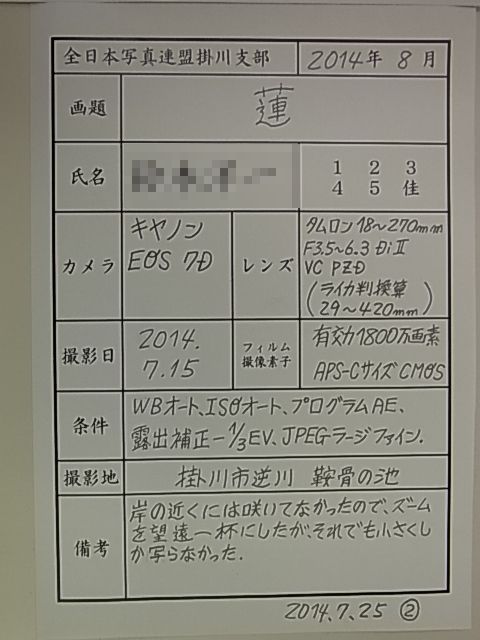 全日本写真連盟掛川支部 2014年 8月
画題 蓮
氏名 1 2 3
4 5 佳
カメラ
キヤノン
EOS 7D
レンズ
タムロン18~270mm
F3.5~6.3 DiⅡ
VC PZD
(ライカ判換算
29~420mm)
撮影日
2014.
7.15
フィルム
撮像素子
有効1800万画素
APS-CサイズCMOS
条件
WBオート、ISOオート、プログラムAE、
露出補正-1/3EV、JPEGラージファイン.
撮影地 掛川市逆川 鞍骨の池
備考
岸の近くには咲いてなかったので、ズーム
を望遠一杯にしたが、それでも小さくし
か写らなかった.
2014.7.25 ②